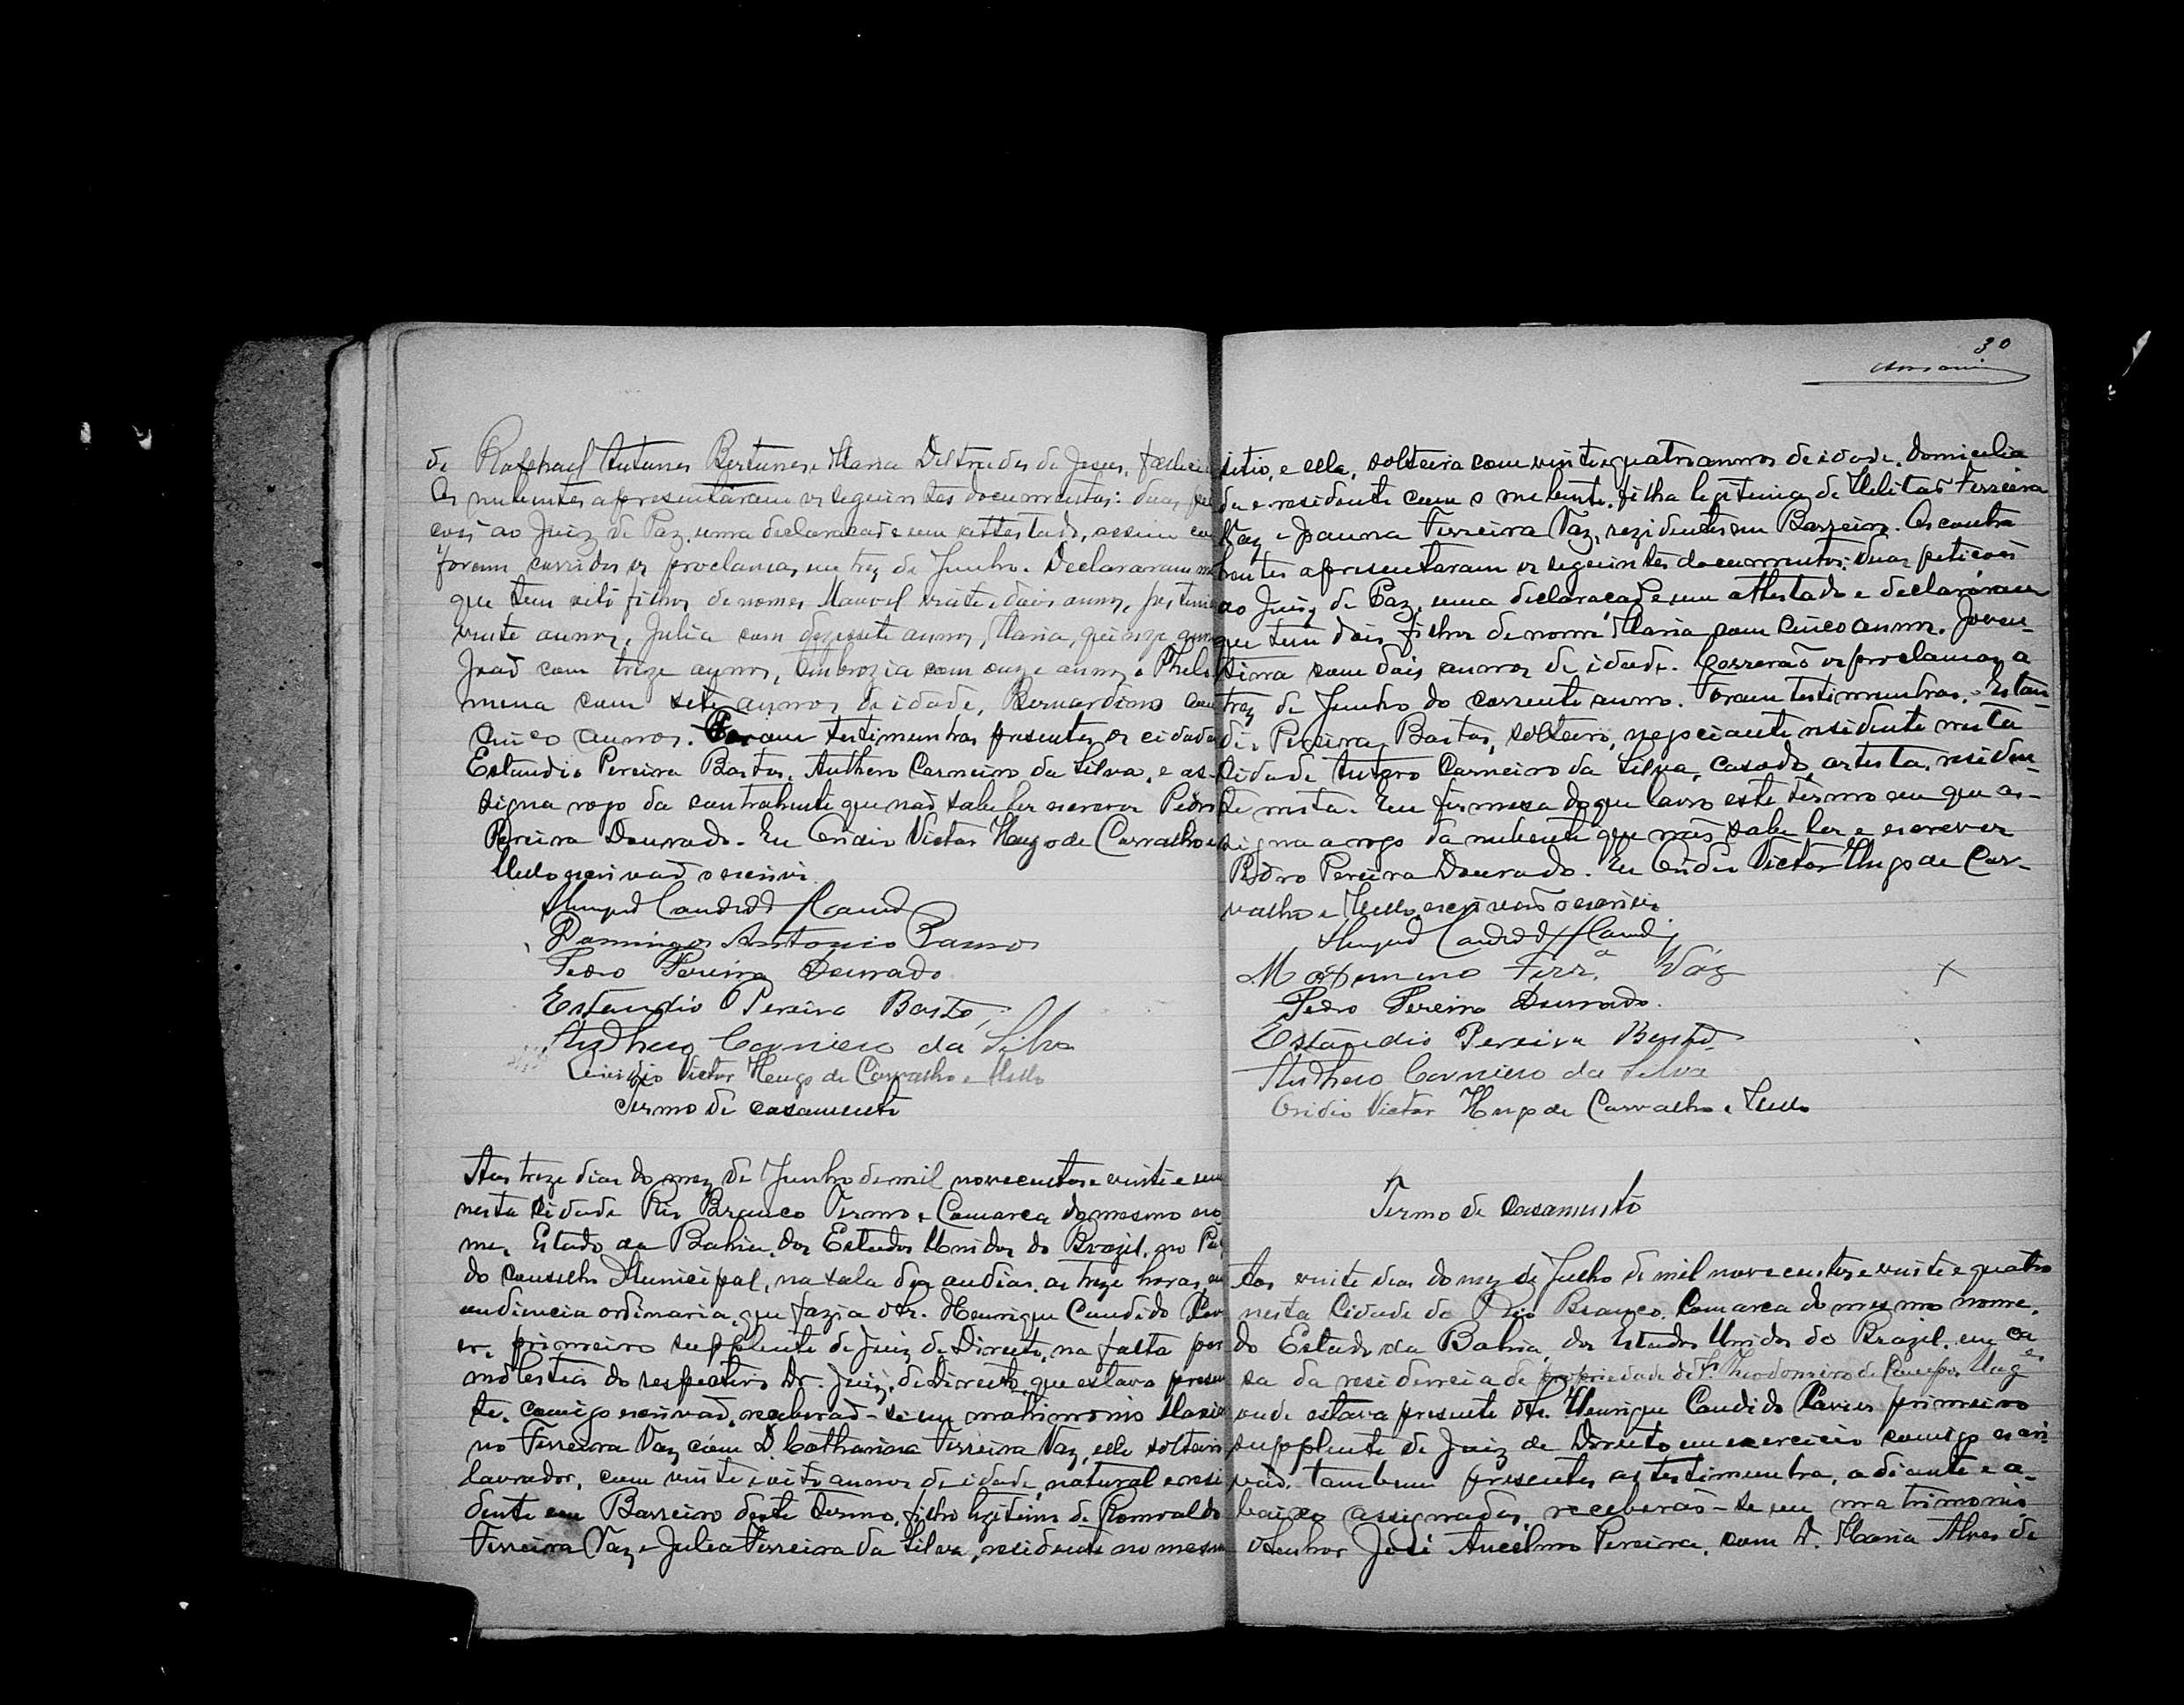 de Raphael Antunes Bertunes e Maria de Jesus,
Os nubentes apresentáram os seguintes documentos: duas
ao Juiz de Paz, uma declaracaõ e um attestado, assim
foram corridos os proclamas, em trez de Junho. Declararam
que tem oito filhos de nomes Manoel vinte e dois annos,
vinte annos, Julia com dezessete annos, Maria, quinze
Joaõ com treze annos, Ambrozia com onze annos, Philo
mena com sete annos de idade, Bernardino com
cinco annos. Foram testimunhas presentes os cidadaõ
Estandio Pereira Bastos, Anthero Carneiro da Silva, e as-
signa rogo da contrahente que naõ sabe ler escrever Pedro
Pereira Dourado. Eu Ovidio Victor Hugo de Carvalho e
Mello escrivaõ o escrivi.
Candido
Domingos Antonio Ramos
Pedro Pereira Dourado
Estandio Pereira Bastos
Anthero Carneiro da Silva
Ovidio Victor Hugo de Carvalho e Mello
Termo de casamento
Aos treze dias do mez de Junho de mil novecentos e vinte e
nesta Cidade Rio Branco Termo e Comarca do mesmo no
me, Estado da Bahia, dos Estados Unidos do Brazil, no
do Conselho Municipal, na sala das audias, as treze horas, em
audiencia ordinaria, que fazia o Sr. Henrique Candido
primeiro supplente de Juiz de Direito, na falta por
molestia do respectivo Dr. Juiz de Direito, que estava presen
te, comigo escrivaõ, receberaõ-se em matrimonio
no Ferreira Vaz com D. Catharina Ferreira Vaz, elle solteiro
lavrador, com vinte e oito annos de idade, natural e resi
dente em Barreiro deste termo, filho legitimo de Romvaldo
Ferreira Vaz e Julia Ferreira da Silva, residente no mesmo
30
sitio, e ella, solteira com vinte e quatro annos de idade, domicilia
da e residente com o nubente, filha legitima de Ferreira
Vaz e Joanna Ferreira Vaz, rezidentes em Barreiro. Os contra
hentes apresentaram os seguintes documentos: duas peticoẽs
ao Juiz de Paz, uma declaracaõ e um attestado e declaráram
que tem dois filhos de nome Maria com cinco annos, Joven-
tina com dois annos de idade. Correraõ os proclamas a
trez de Junho do corrente anno. Foram testimunhas. Estan-
dio Pereira Bastos, solteiro, negociante residente nesta
Cidade Antero Carneiro da Silva, casado, artista, residen-
te nesta. Em firmeza do que lavro este termo em que as-
signa a rogo da nubente que naõ sabe ler e escrever
Pedro Pereira Dourado. Eu Ovidio Victor Hugo de Car-
valho e Mello, escrivaõ o escrivi.
Candido
Ferr.ª Váz
X
Pedro Pereira Dourado.
Estandio Pereira Bastos
Anthero Carneiro da Silva
Ovidio Victor Hugo de Carvalho e Mello
Termo de Casamento
Aos vinte dias do mez de Julho de mil novecentos e vinte e quatro
nesta Cidade do Rio Branco, Comarca do mesmo nome,
do Estado da Bahia, dos Estados Unidos do Brazil, em ca
sa da residencia de propriedade de Theodomiro de
onde estava presente o Sr. Henrique Candido primeiro
supplente de Juiz de Direito em exercicio comigo escri
vaõ, tambem presentes as testimunha, adiante e a-
baixo assignadas, receberaõ-se em matrimonio
o Senhor José Ancelmo Pereira, com D. Maria Alves de